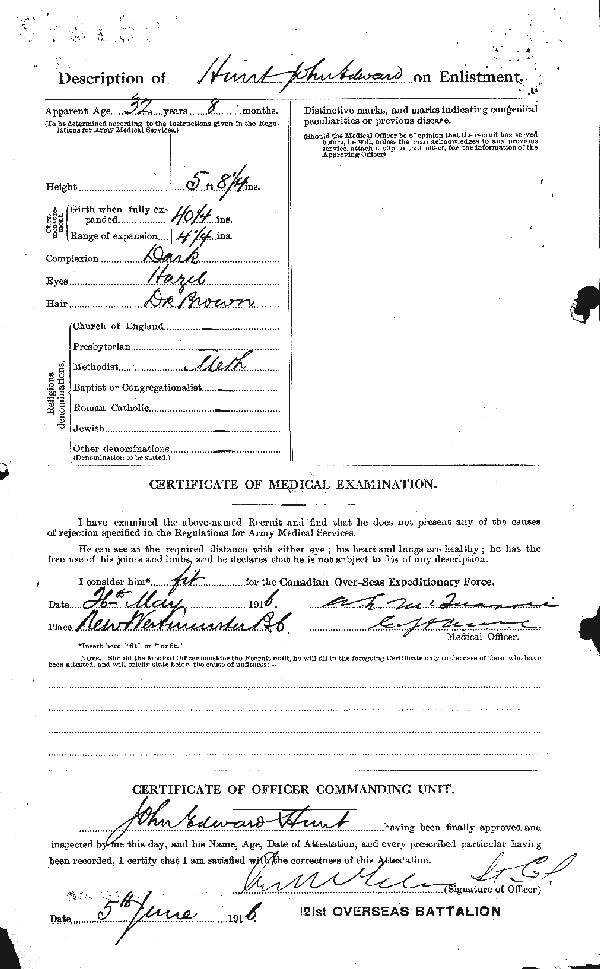 Description of Hunt John Edward on Enlistment.
Apparent Age 32 years 8 months.
(To be determined according to the instructions given in the Regulations for Army Medical Services.)
Distinctive marks, and marks indicating congenital peculiarities or previous disease.
(Should the Medical Officer be of opinion that the recruit has served before, he will, unless the man acknowledges to any previous service, attach a slip to that effect, for the information of the Approving Officer).
Height 5 ft 8 1/4 ins.
Girth when fully expanded 40 1/4 ins.
Range of expansion 4 1/4 ins.
Complexion Dark
Eyes Hazel
Hair Dk Brown
Religious denominations.
Church of England
Presbyterian
Methodist Meth
Baptist or Congregationalist
Roman Catholic
Jewish
Other denominations
(Denomination to be stated.)
CERTIFICATE OF MEDICAL EXAMINATION.
I have examined the above-named Recruit and find that he does not present any of the causes
of rejection specified in the Regulations for Army Medical Services.
He can see at the required distance with either eye; his heart and lungs are healthy; he has the
free use of his joints and limbs, and he declares that he is not subject to fits of any description.
I consider him* fit for the Canadian Over-Seas Expeditionary Force.
Date May 1916.
Place New Westminster B.C.
Medical Officer.
*Insert here "fit" or "unfit."
NOTE. Should the Medical Officer consider the Recruit unfit, he will fill in the foregoing Certificate only in the case of those who have
been attested, and will briefly state below the cause of unfitness:—
CERTIFICATE OF OFFICER COMMANDING UNIT.
John Edward Hunt having been finally approved and
inspected by me this day, and his Name, Age, Date of Attestation, and every prescribed particular having
been recorded, I certify that I am satisfied with the correctness of this Attestation.
Lt Col
(Signature of Officer)
Date 5th June 1916.
121st OVERSEAS BATTALION